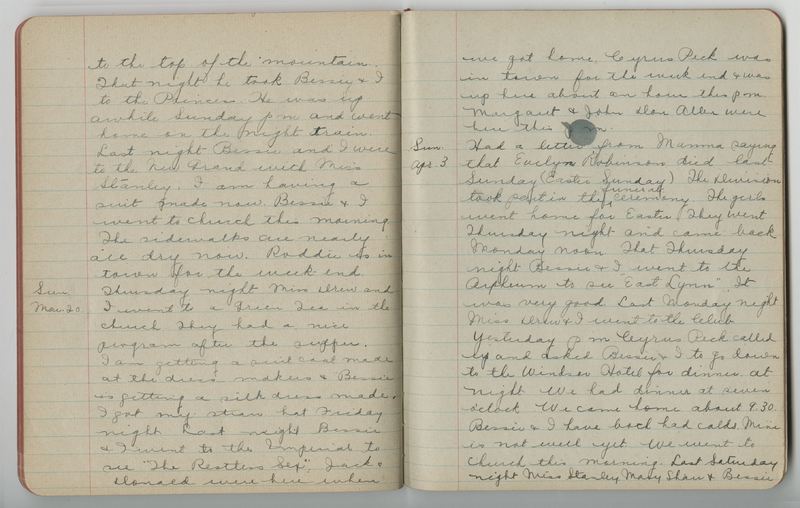 to the top of the mountain.
That night he took Bessie & I
to the Princess. He was up
awhile Sunday pm and went
home on the night train.
Last night Bessie and I were
to the New Grand with Miss
Stanley. I am having a
suit made now. Bessie & I
went to church this morning
The sidewalks are nearly
all dry now. Roddie is in
town for the week-end
Sun. Mar. 20. Thursday night Miss Drew and
I went to a Green Tea in the
church They had a nice
program after the supper.
I am getting a suit coat made
at the dress makers & Bessie
is getting a silk dress made.
I got my straw hat Friday
night Last night Bessie
& I went to the Imperial to
see "The Restless Sex", Jack &
Donald were here when
we got home. Cyrus Peck was
in town for the week end & was
up here about an hour this p.m.
Margaret & John Allen were
here this p.m.
Sun. Apr. 3 Had a letter from Mamma saying
that Evelyn Robinson died last
Sunday (Easter Sunday) The Division
took part in the funeral ceremony. The girls
went home for Easter They went
Thursday night and came back
Monday noon That Thursday
night Bessie & I went to the
Orpheum to see East Lynn" It
was very good Last Monday night
Miss Drew & I went to the Club
Yesterday p m Cyrus Peck called
up and asked Bessie & I to go down
to the Windsor Hotel for dinner at
night We had dinner at seven
o'clock We came home about 9.30.
Bessie & I have both had colds. Mine
is not well yet We went to
church this morning. Last Saturday
night Miss Stanley, Mary Shaw & Bessie